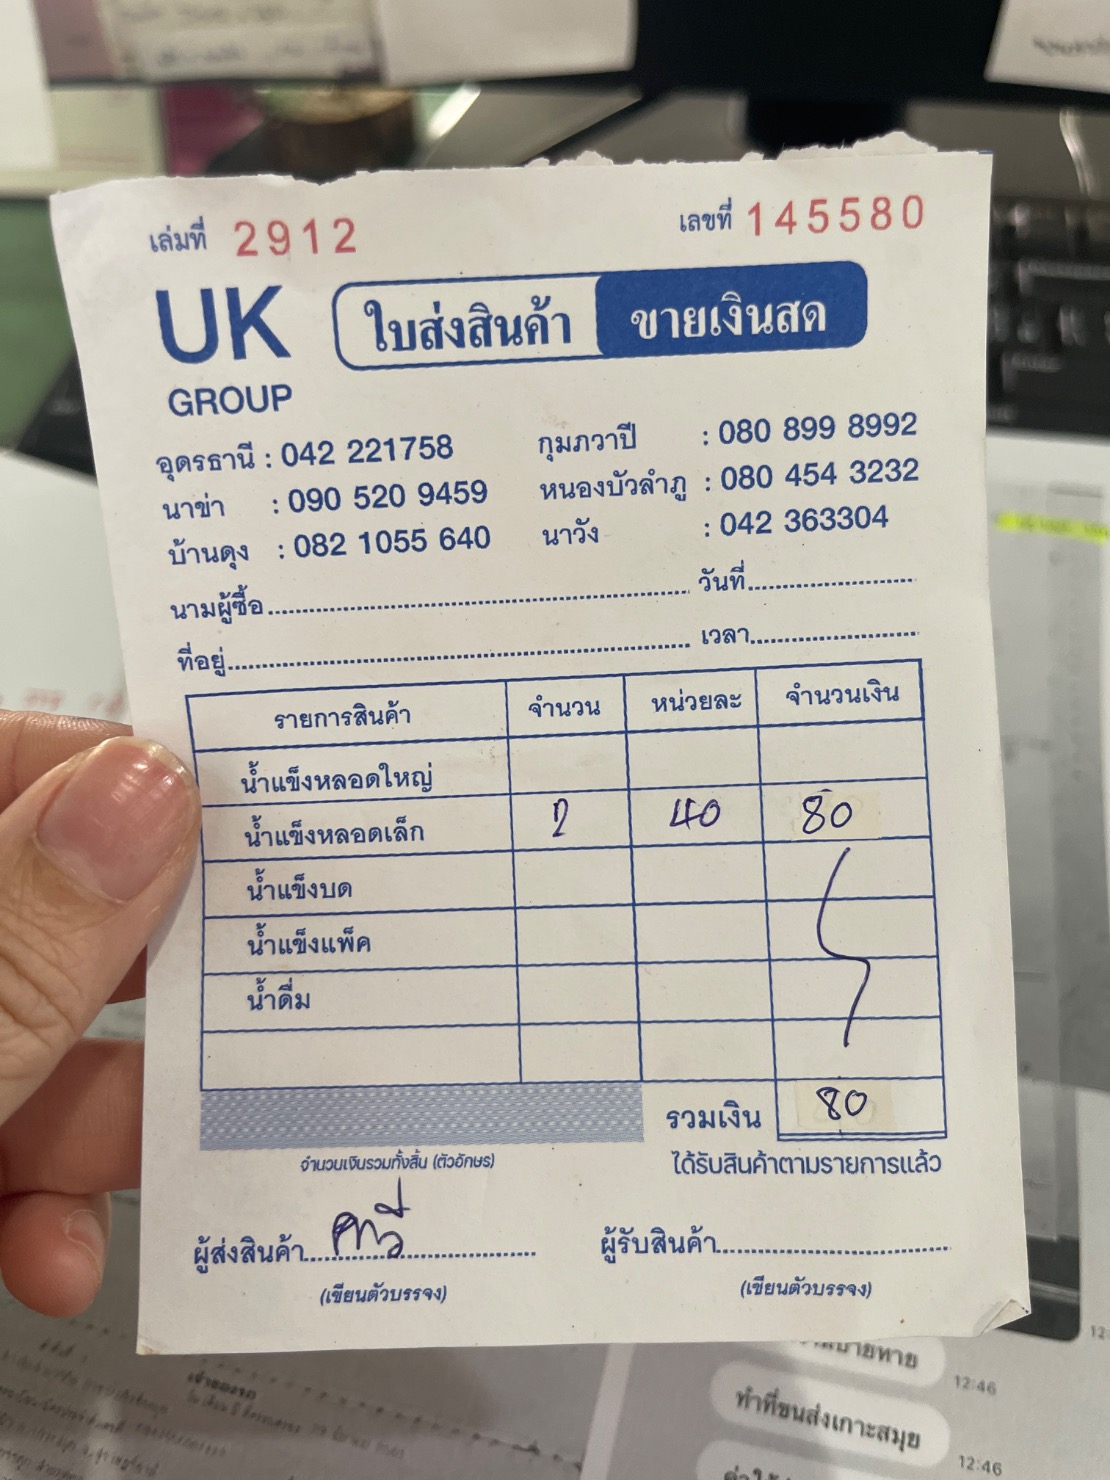 เล่มที่ 2912 เลขที่ 145580
UK
GROUP
ใบส่งสินค้า ขายเงินสด
อุดรธานี : 042 221758 กุมภวาปี : 080 899 8992
นาข่า : 090 520 9459 หนองบัวลำภู : 080 454 3232
บ้านดุง : 082 1055 640 นาวัง : 042 363304
นามผู้ซื้อ วันที่
ที่อยู่ เวลา
รายการสินค้า จำนวน หน่วยละ จำนวนเงิน
น้ำแข็งหลอดใหญ่
น้ำแข็งหลอดเล็ก 2 40 80
น้ำแข็งบด
น้ำแข็งแพ็ค
น้ำดื่ม
รวมเงิน 80
จำนวนเงินรวมทั้งสิ้น (ตัวอักษร) ได้รับสินค้าตามรายการแล้ว
ผู้ส่งสินค้า ผู้รับสินค้า
(เขียนตัวบรรจง) (เขียนตัวบรรจง)
12:46
ทำที่ขนส่งเกาะสมุย
12:46
เจ้าของรถ